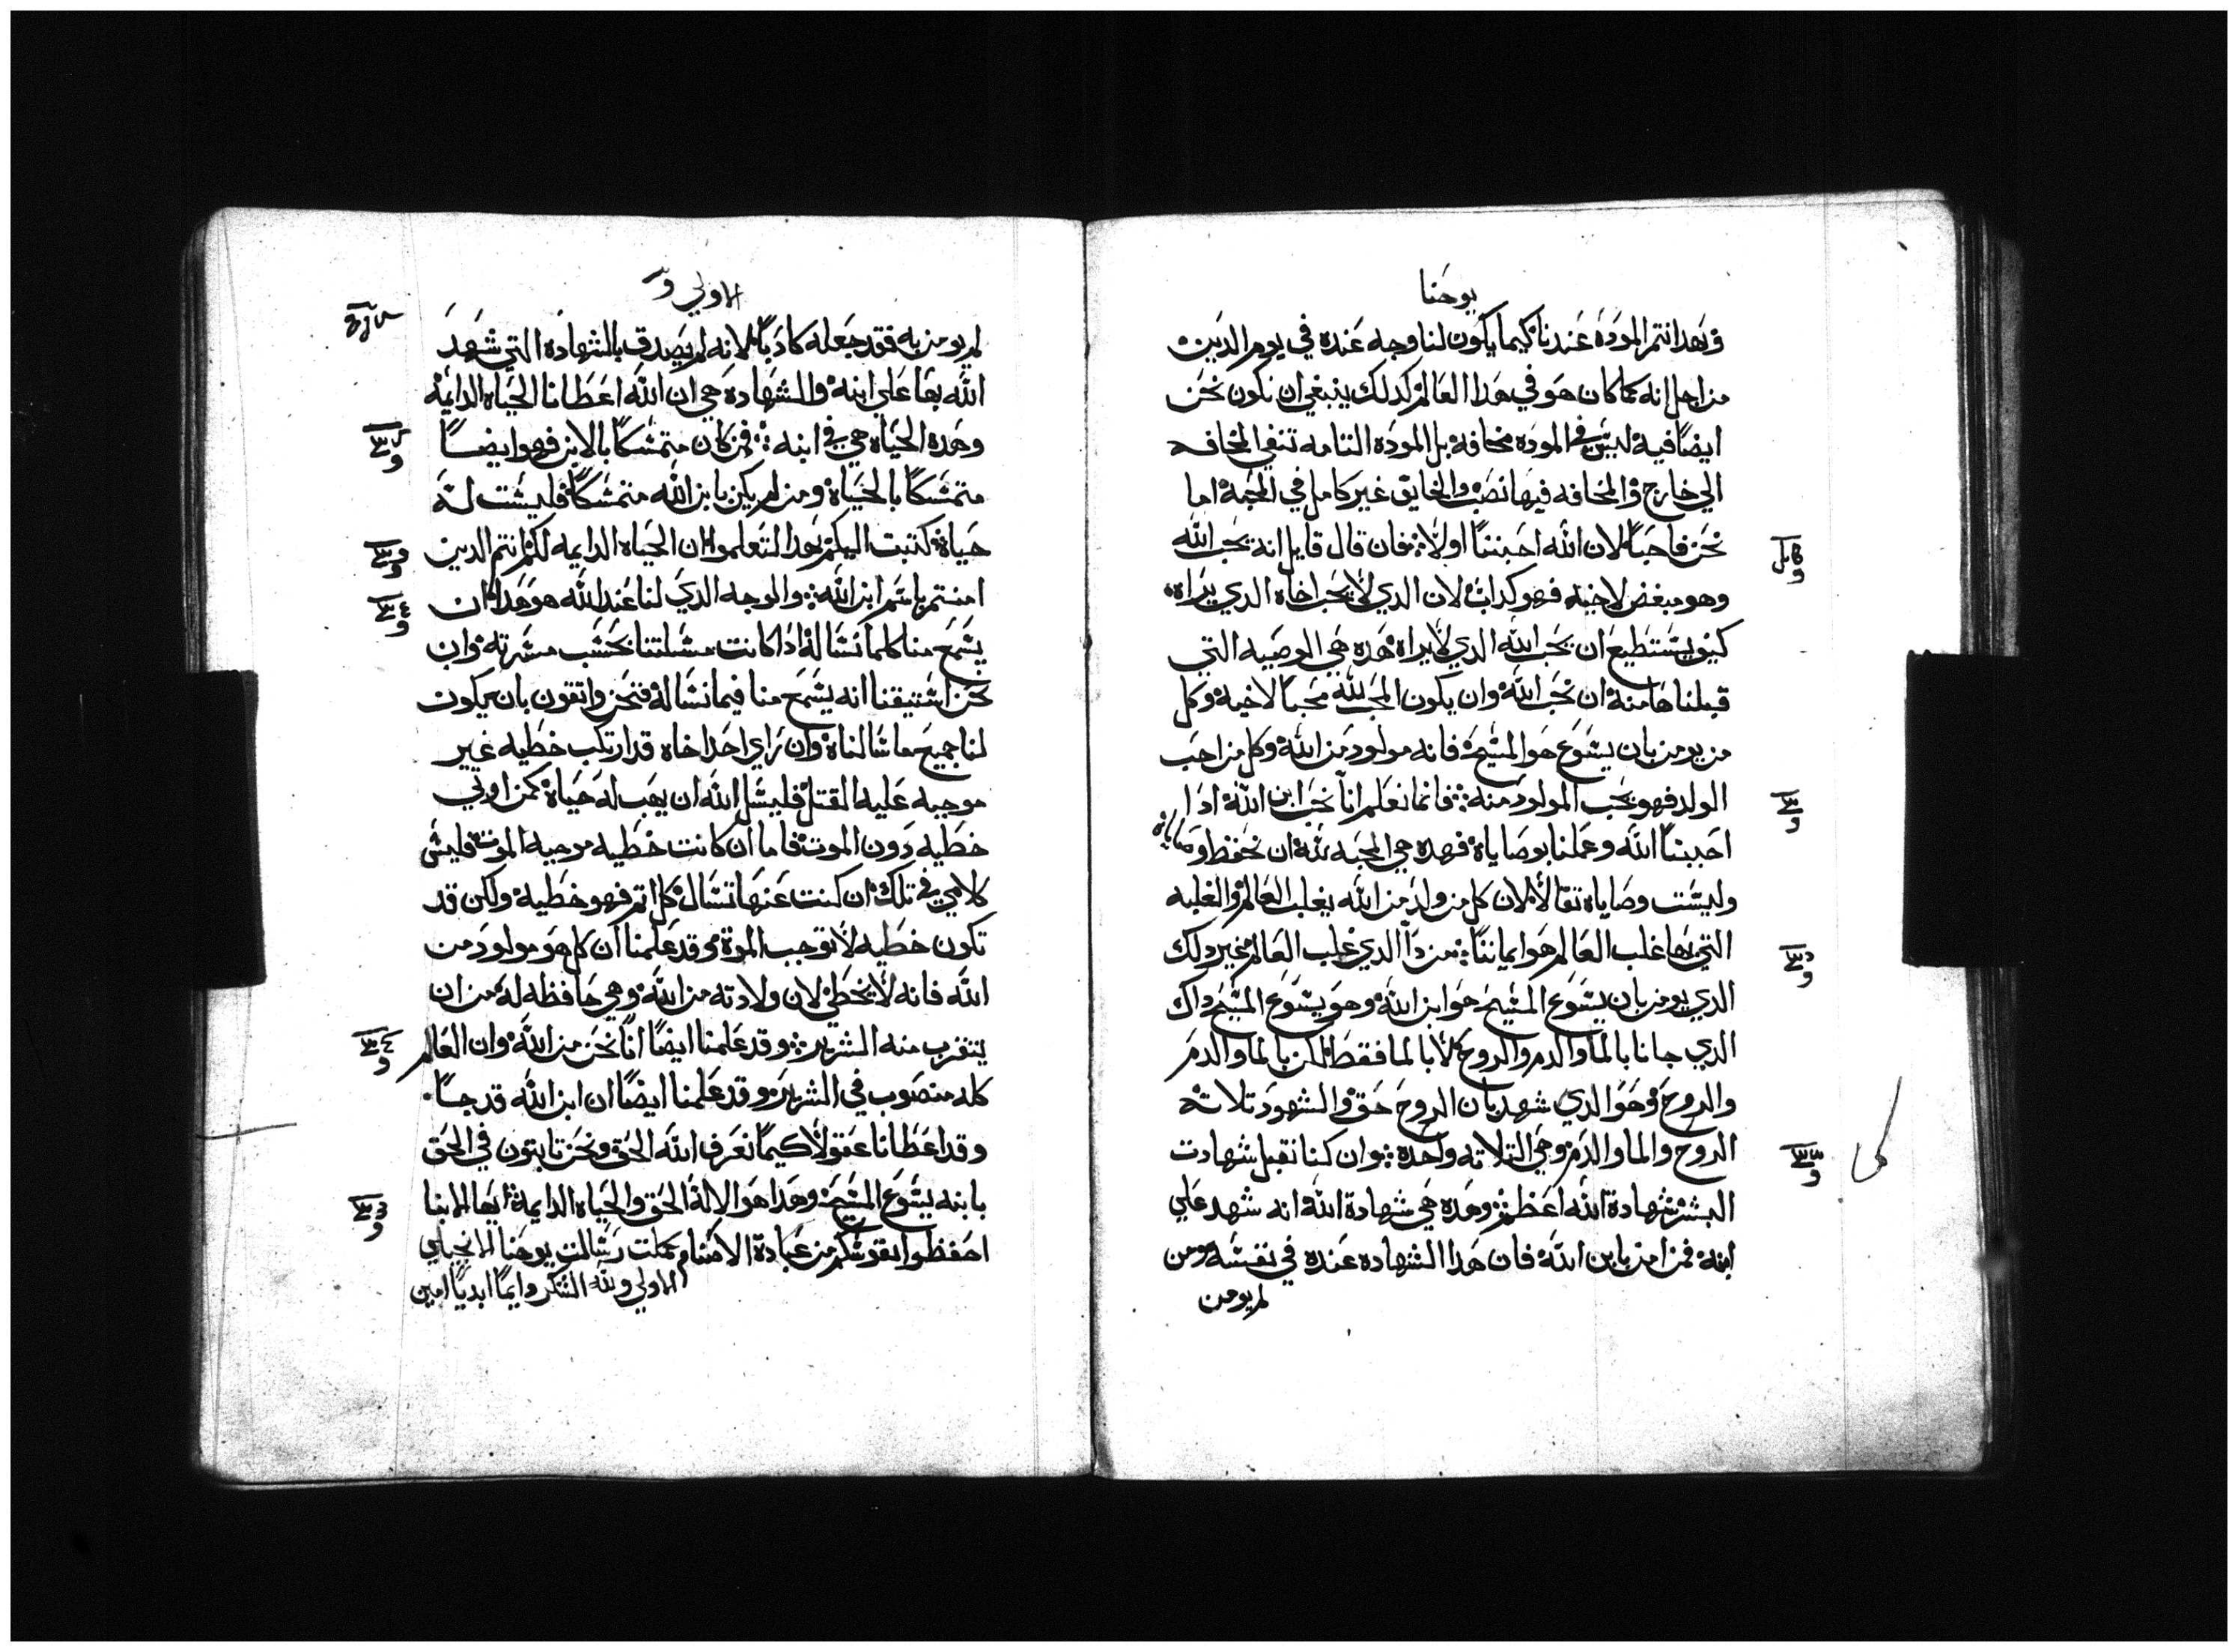 يوحنا
وبهدا تتم الموده عندنا كيما يكون لنا وجه عنده في يوم الدين
من اجل انه كما كان هو في هدا العالم كدلك ينبغي ان نكون نحن
ايضًا فيه ليس في الموده مخافه بل الموده التامه تنفي المخافه
الي خارج والمخافه فيها نصب والخايف غير كامل في المحبه اما
نحن فاحبا لان الله احبننا اولًا فان قال قايل انه يحب الله
وهو مبغض لاخيه فهو كداب لان الدي لا يحب اخاه الدي يراه
كيف يستطيع ان يحب الله الدي لا يراه هده هي الوصيه التي
قبلناها منه ان نحب الله وان يكون المحب لله محبًا لاخيه وكل
من يومن بان يسوع هو المسيح فانه مولود من الله وكل من احب
الولد فهو يحب المولود منه فانما نعلم انا نحب ابن الله ادا
احببنا الله وعملنا بوصاياه فهده هي المحبه لله ان نحفظ وصاياه
وليست وصاياه تقالًا لان كل من ولد من الله يغلب العالم والغلبه
التي بها غلب العالم هو ايماننا من دا الدي غلب العالم غير دلك
الدي يومن بان يسوع المسيح هو ابن الله وهو يسوع المسيح داك
الدي جانا بالما والدم والروح لا بالما فقط لكن بالما والدم
والروح وهو الدي شهد بان الروح حق والشهود تلاته
الروح والما والدم وهي التلاته واحده وان كنا نقبل شهادت
البشر شهادة الله اعظم وهده هي شهادة الله انه شهد علي
ابنه فمن امن بابن الله فان هدا الشهاده عنده في نفسه ومن
لم يومن
الاولي
لم يومن به فقد جعله كادبًا لانه لم يصدق بالشهاده التي شهد
الله بها علي ابنه والشهاده هي ان الله اعطانا الحياه الدايمه
وهده الحياه هي في ابنه فمن كان متمسكًا بالابن فهو ايضًا
متمسكًا بالحياة ومن لم يكن بابن الله متمسكًا فليست له
حياة كتبت اليكم بهدا لتعلموا ان الحياه الدايمه لكم انتم الدين
امنتم باسم ابن الله والوجه الدي لنا عند الله هو هدا ان
يسمع منا كلما نساله ادا كانت مسلتنا بحسب مسرته وان
نحن استيقنا انه يسمع منا فيما نساله فنحن واتقون بان يكون
لنا جميع ما سالناه وان راي احد اخاه قد ارتكب خطيه غير
موجبه عليه القتل فليسل الله ان يهب له حياة كمن اوتي
خطيه دون الموت فاما ان كانت خطيه موجبه الموت فليس
كلامي في تلك ان كنت عنها تسال كل اتم فهو خطيه ولكن قد
تكون خطيه لا توجب الموة وقد علمنا ان كل هو مولود من
الله فانه لا يخطي لان ولادته من الله وهي حافظه له من ان
يتقرب منه الشرير وقد علمنا ايضًا انا نحن من الله وان العالم
كله منصوب في الشرير وقد علمنا ايضًا ان ابن الله قد جا
وقد اعطانا عقولًا كيما نعرف الله الحق ونحن تابتون في الحق
بابنه يسوع المسيح وهدا هو الاله الحق والحياه الدايمة ايها الابنا
احفظوا نفوسكم من عبادة الاصنام كملت رسالت يوحنا الانجيلي
الاولي ولله الشكر دايمًا ابديًا امين